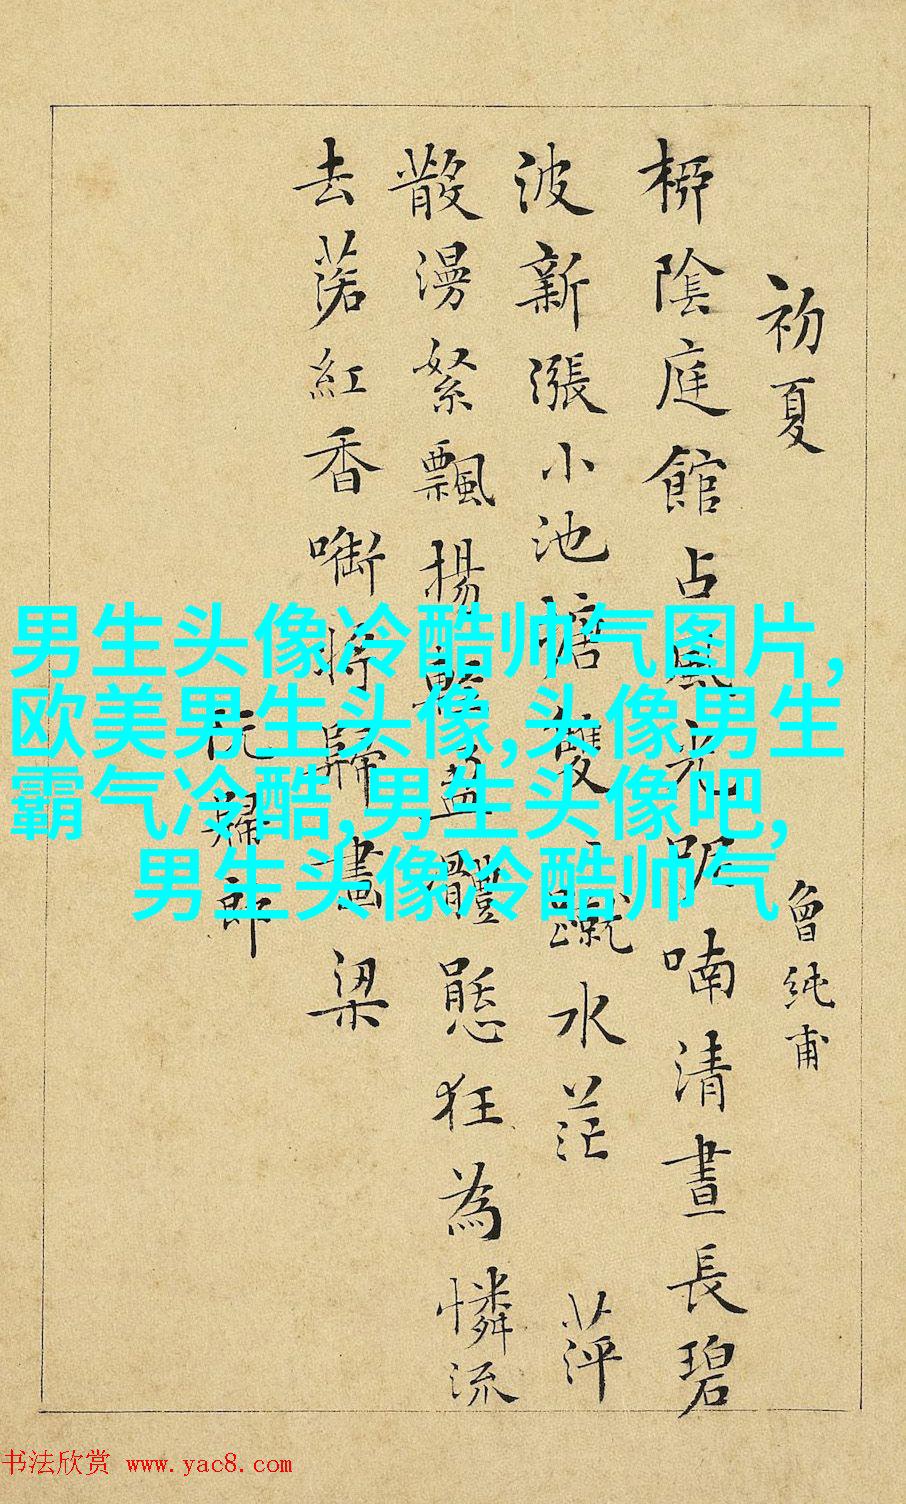 初夏 曾純甫
桺陰庭館占風光呢喃清晝長碧
波新漲小池塘雙蹴水茫 萍
散漫絮飄揚輕盈體態狂為憐流
去落紅香啣將歸畫梁
阮歸郎
男生头像冷酷帅气图片,
欧美男生头像,头像男生
霸气冷酷,男生头像吧,
男生头像冷酷帅气
书法欣赏 www.yac8.com